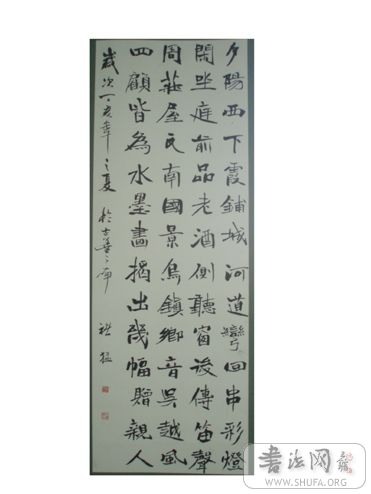 夕陽西下霞鋪城河道彎回串彩燈
閑坐庭前品老酒側聽窗後傳笛聲
周莊屋民南國景烏鎮鄉音吳越風
四顧皆為水墨畫揭出幾幅贈親人
歲次丁亥年之夏於古
書法网
WWW.SHUFA.ORG